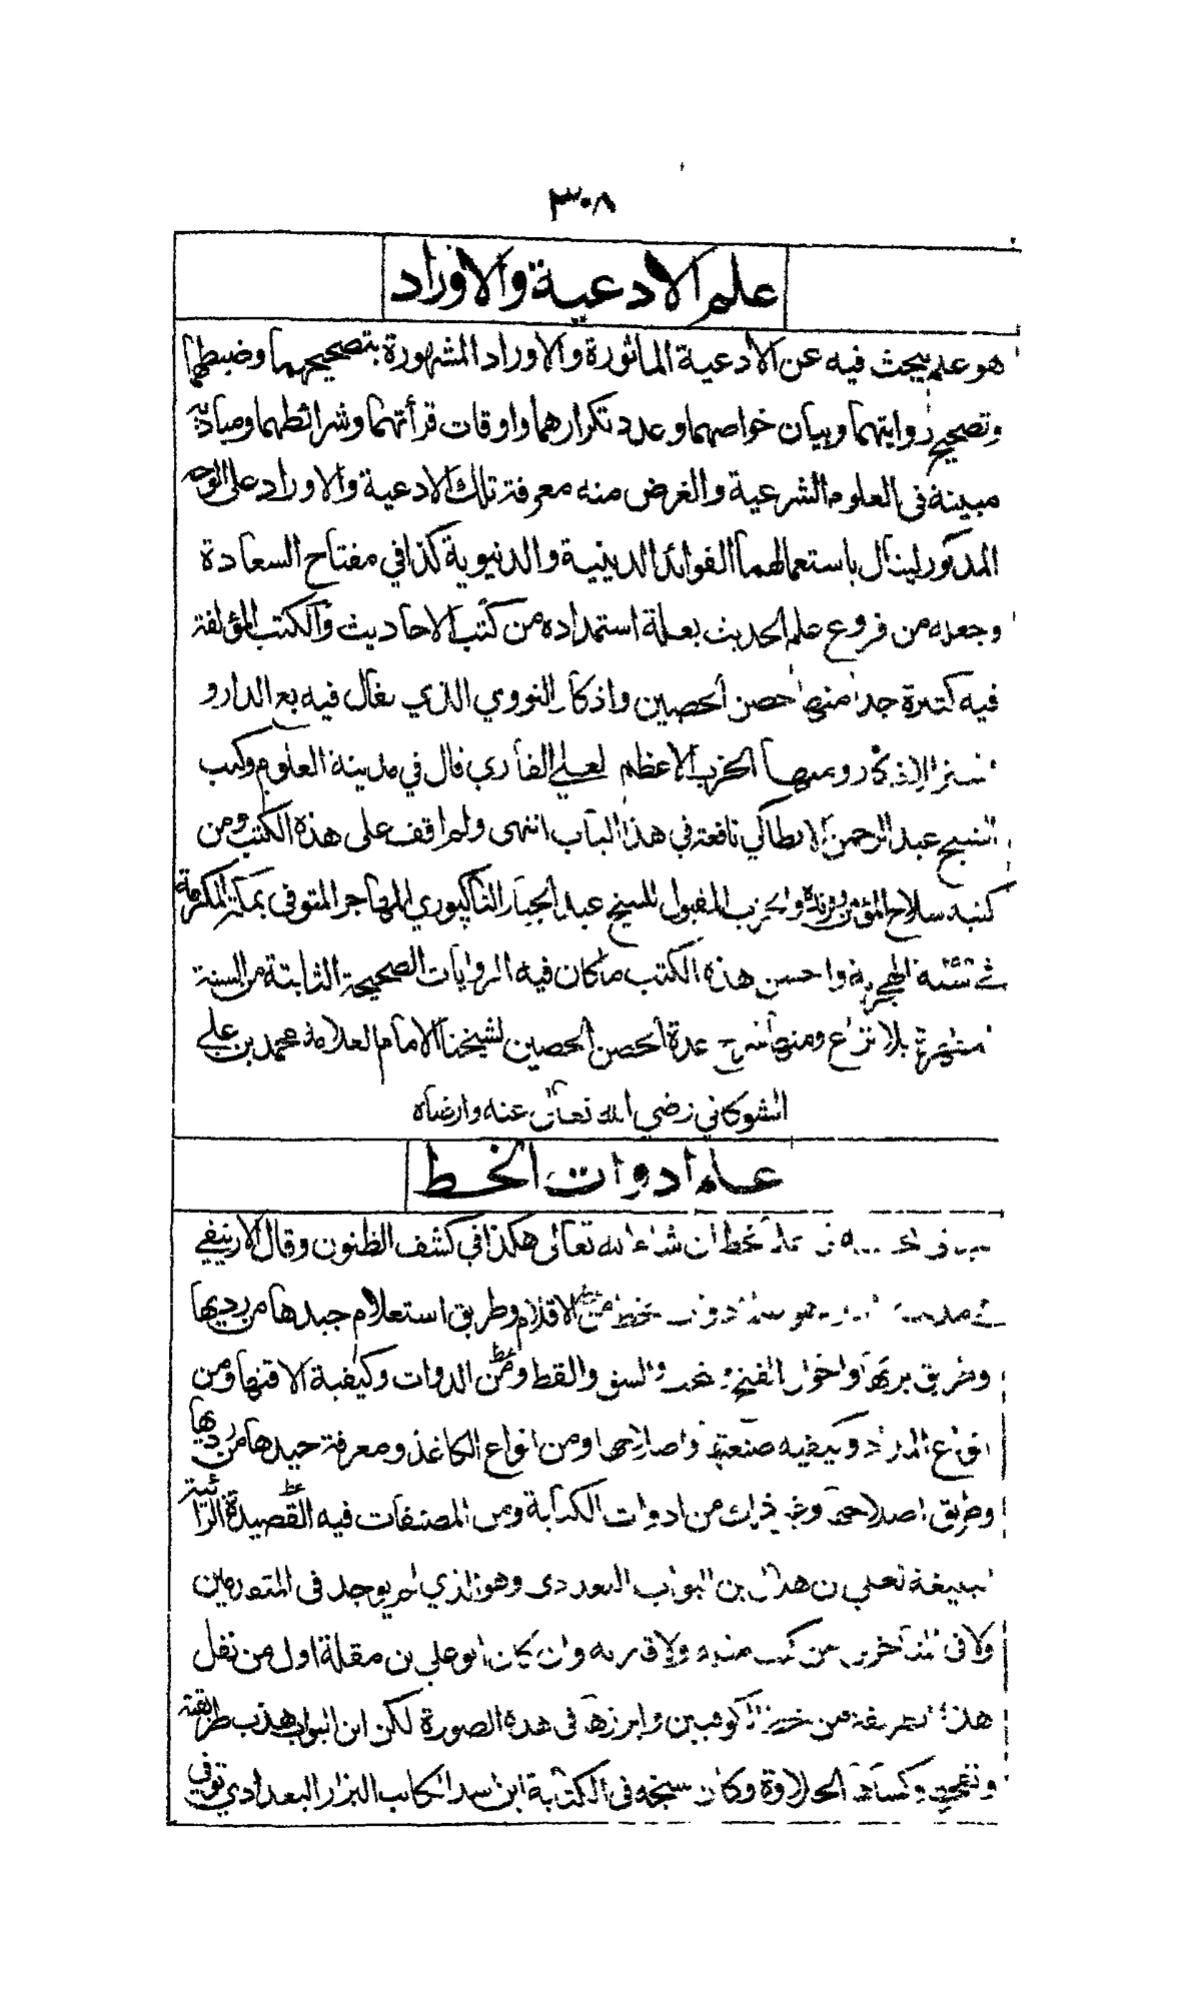 ٣٠٨
علم الادعية والاوراد
هو علم يبحث فيه عن الأدعية الماثورة والاوراد المشهورة بتصحيحهما وضبطهما
وتصحيح روايتهما وبيان خواصهما وعدد تكرارهما واوقات قرأتهما وشرائطهما ومباديه
مبينة في العلوم الشرعية والغرض منه معرفة تلك الادعية والاوراد على الوجه
المذكور لينال باستعمالهما الفوائد الدينية والدنيوية كذا في مفتاح السعادة
وجعله من فروع علم الحديث بعلة استمداده من كتب الاحاديث والكتب المؤلفة
فيه كثيرة جدا منها حصن الحصين واذكار النووي الذي يقال فيه بع الدار و
اشتر الاذكار ومنها الحزب الاعظم لعلي القاري قال في مدينة العلوم وكتب
الشيخ عبد الرحمن الانطاكي نافعة في هذا الباب انتهى ولم اقف على هذه الكتب ومن
كتبه سلاح المؤمن وفرنده والحزب المقبول للشيخ عبد الجبار الناگپوري المهاجر المتوفى بمكة المكرمة
الهجرية واحسن هذه الكتب ما كان فيه الروايات الصحيحة الثابتة من السنة
بلا نزاع ومنها شرح عدة الحصن الحصين لشيخنا الامام العلامة محمد بن علي
الشوكاني رضي الله تعالى عنه وارضاه
علم ادوات الخط
خط ان شاء الله تعالى هكذا في كشف الظنون وقال الارنيقي
الاقلام وطريق استعلام جيدها من رديها
وطريق بريها واحوال الفتح والشق والقط ومن الدوات وكيفية الاقتها ومن
انواع المداد وكيفية صنعته واصلاحها ومن انواع الكاغذ ومعرفة جيدها من رديها
وطريق اصلاحها وغير ذلك من ادوات الكتابة ومن المصنفات فيه القصيدة الرائية
البليغة لعلي بن هلال بن البواب البغدادي وهو الذي لم يوجد في المتقدمين
ولا في المتأخرين من كتب مثله ولا قاربه وان كان ابو علي بن مقلة اول من نقل
هذه الطريقة من خط الكوفيين وابرزها في هذه الصورة لكن ابن البواب هذب طريقته
ونقحها وكساها الحلاوة وكان شيخه في الكتابة ابن اسد الكاتب البزار البغدادي توفي